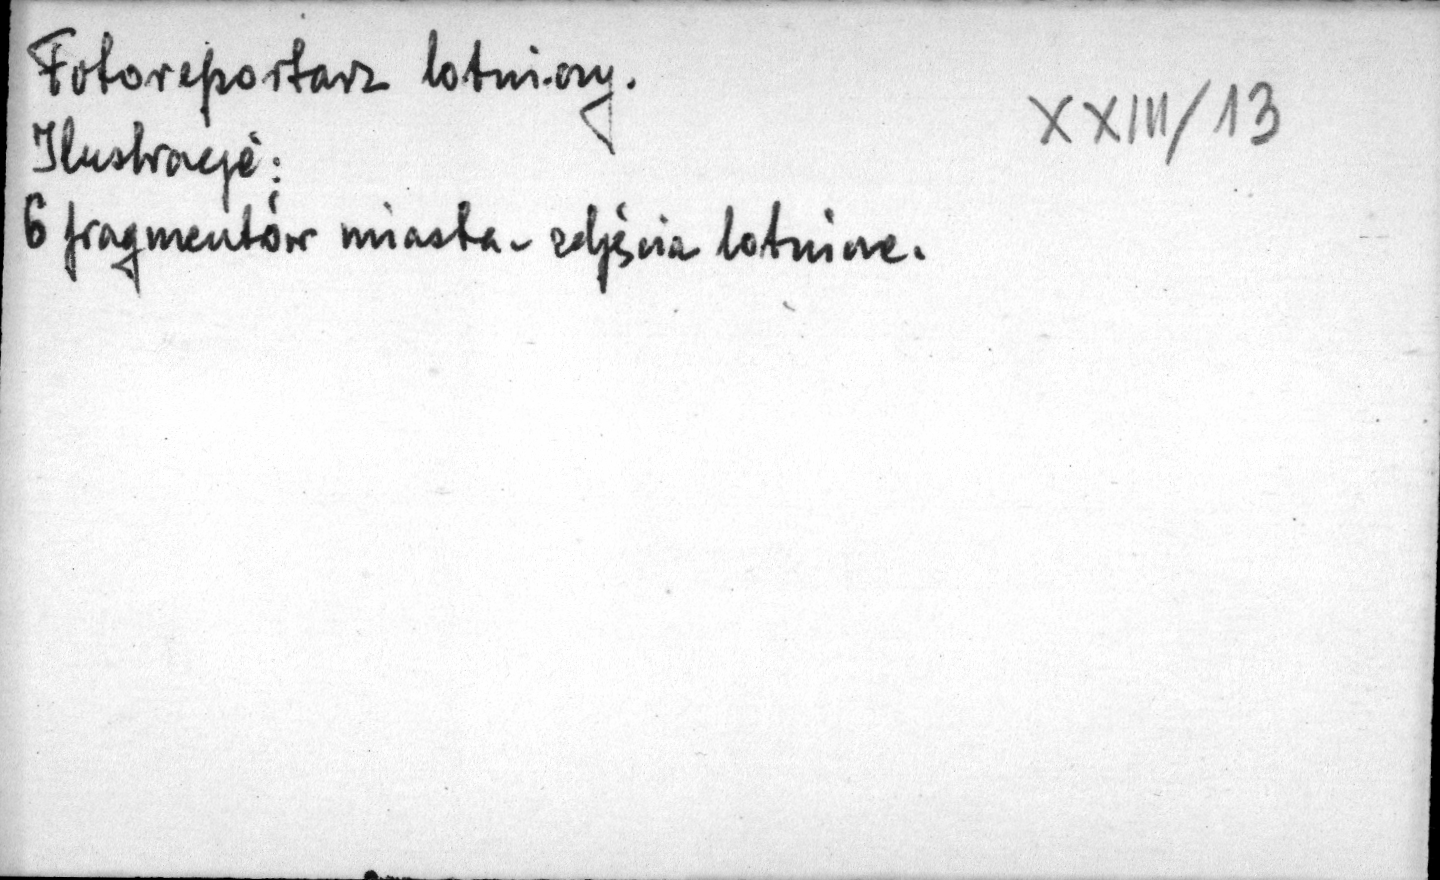 Fotoreportarz lotniczy.
XXIII/13
Ilustracje:
6 fragmentów miasta - zdjęcia lotnicze.